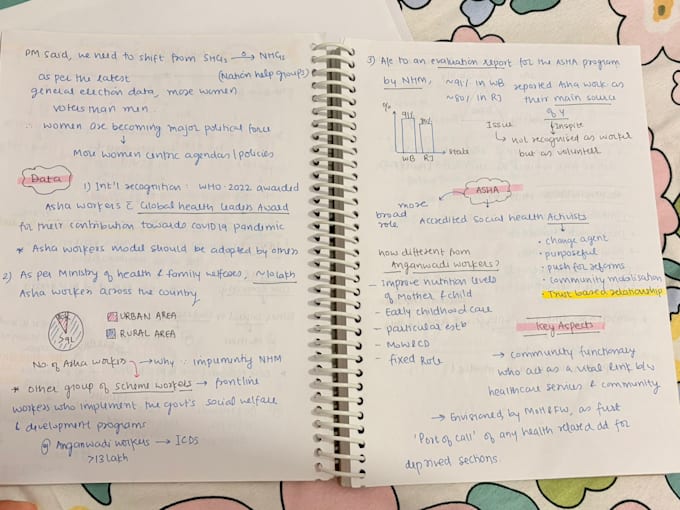 PM said, we need to shift from SHGs → NHGs
(Nation help groups)
as per the latest
general election data, more women
voters than men.
∴ women are becoming major political force
↓
More women centric agendas / policies
Data
1) Int'l recognition : WHO-2022 awarded
Asha workers c̄ Global health leaders Award
for their contribution towards covid 19 pandemic
* Asha workers model should be adopted by others
2) As per Ministry of health & family welfare, ~10 lakh
Asha workers across the country
URBAN AREA
RURAL AREA
>9L
No. of Asha workers → why ∵ NHM
* Other group of scheme workers → frontline
workers who implement the govt's social welfare
& development programs
eg Anganwadi workers → ICDS
>13 lakh
3) A/c to an evaluation report for the ASHA program
by NHM, ~91% in WB reported Asha work as
~80% in RJ their main source
of Y
%
91%
WB RJ State
Issue ↓ Inspite
↳ not recognised as worker
but as volunteer
ASHA
more
broad
role
Accredited Social Health Activists
• change agent
• purposeful
• push for reforms
• community mobilisation
• Trust based relationship
how different from
Anganwadi workers?
- Improve nutrition levels
of Mother & child
- Early childhood care
- particular estb
- MoW&CD
- fixed Role
Key Aspects
→ community functionary
who act as a vital link b/w
healthcare services & community
→ Envisioned by MoH&FW, as first
'Port of call' of any health related dd for
deprived sections.